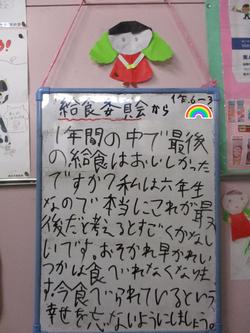 給食委員会から
作.6-3
1年間の中で最後
の給食はおいしかった
ですか?私は六年生
なので本当にこれが最
後だと考えるとすごくかなし
いです。おそかれ早かれい
つかは食べれなくなりま
す。今食べられているという
幸せを忘れないようにしましょう。